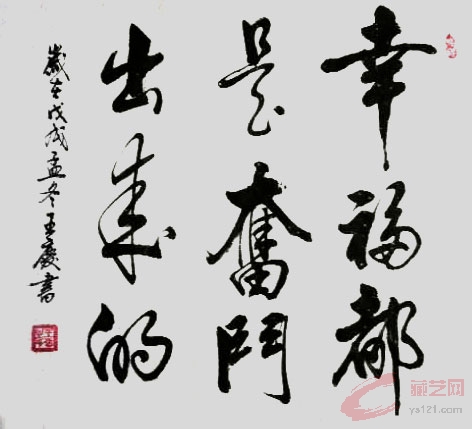 幸福都
是奮鬥
出来的
歲在戊戌孟冬王慶書
藏艺网
ys121.com